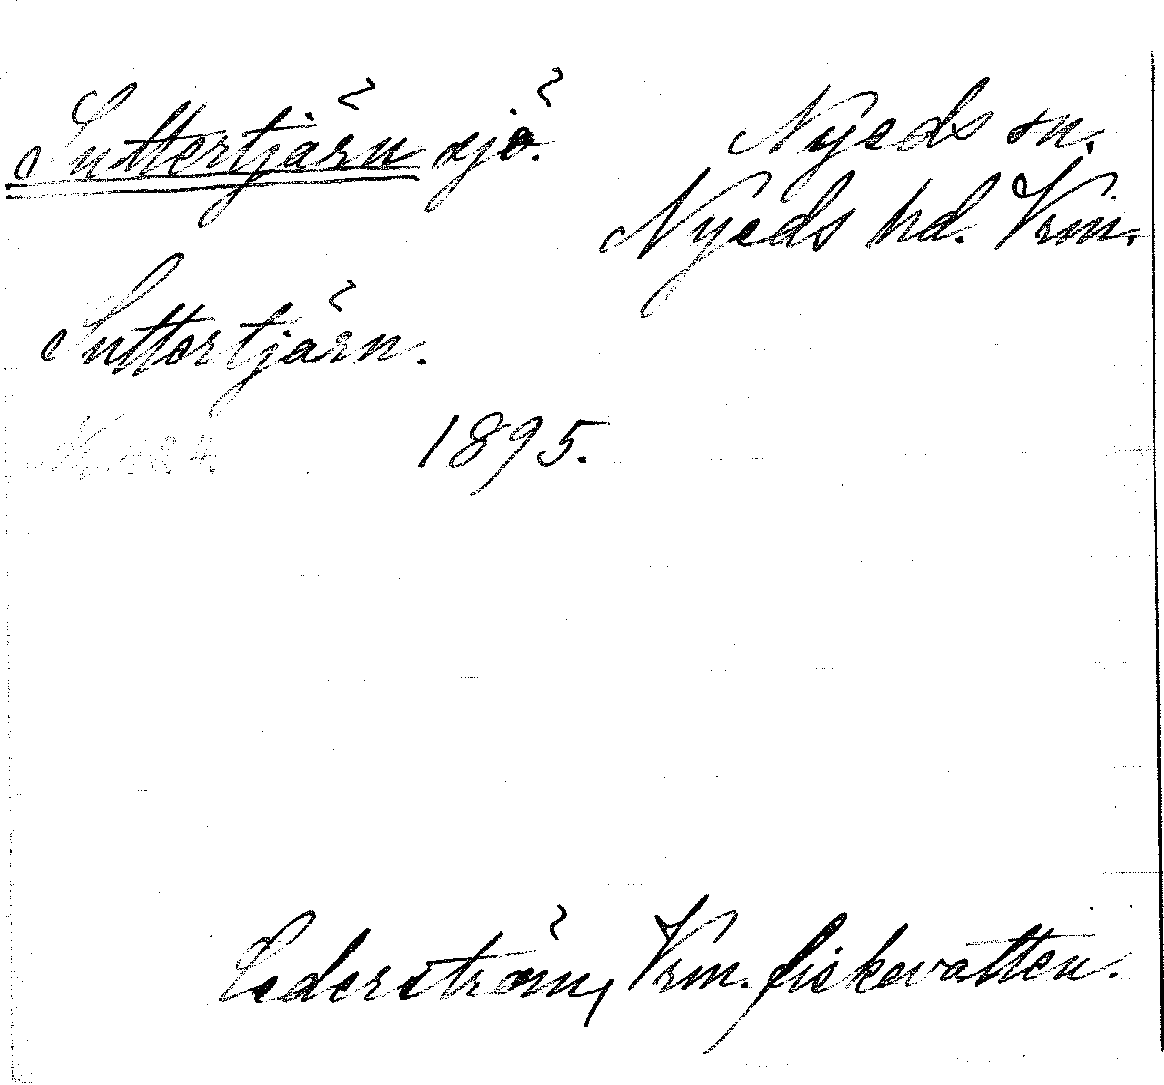 Suttertjärn sjö. Nyeds sn.
Nyeds hd. Vrm.
Suttertjärn.
1895.
Cederström, Vrm. fiskevatten.